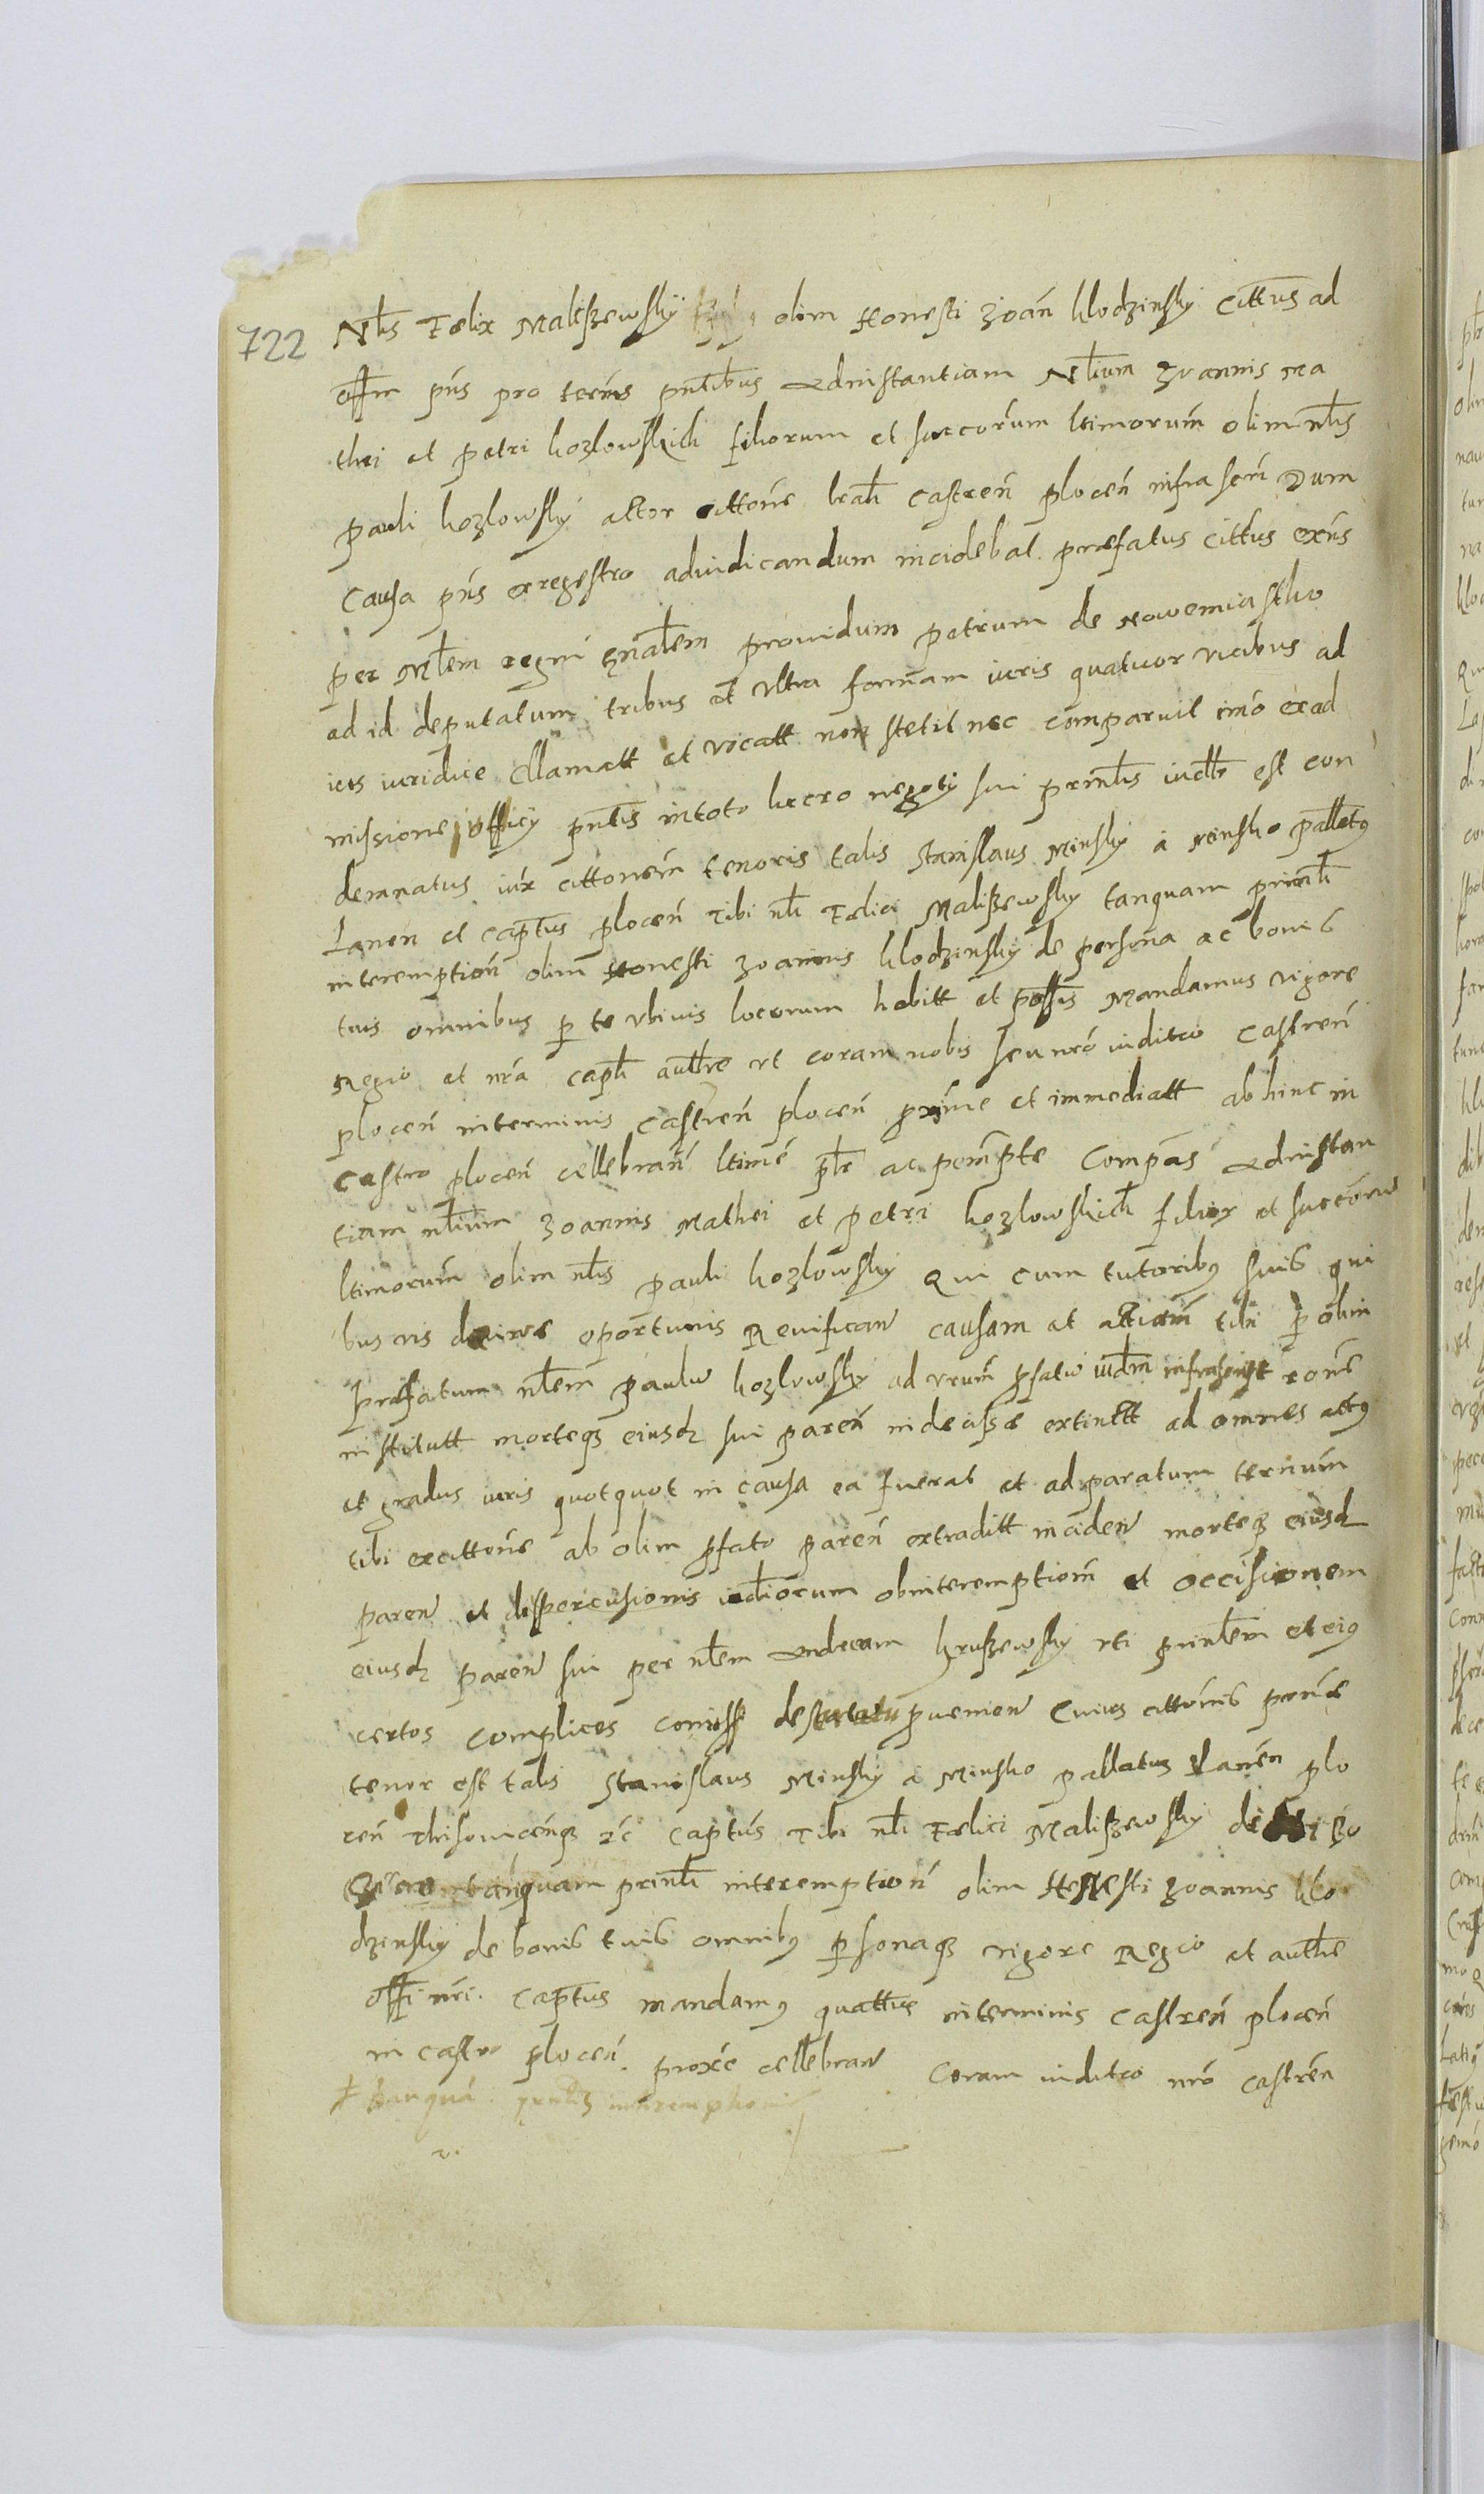 722
Nlis Felix Maliszewsky olim Honesti Joan Klodzinsky Cittus ad
offm pns pro termis pntibus Adinstantiam Nlium Joannis Ma
thei et Petri Kozlowskich filiorum et succorum ltimorum olim nlis
Pauli Kozlowsky actor cittone lrali Castren Plocen infrascri Dum
Causa pns exregestro adiudicandum incidebat. præfatus Cittus exns
per Mlem regni gnalem prouidum Petrum de Nowemiastko
ad id deputatum tribus et vltra formam iuris quatuor vicibus ad
ies iuridice Clamatt et vocatt non stetit nec comparuit imo exad
missione officy pntis intoto lucro negoty sui prinlis iudlr est con
demnatus iux cittonem tenoris talis Stanislaus Minsky a Minsko pallatus
Lanen et captus plocen Tibi nli Felici Maliszewsky tanquam prinli
interemption olim Honesti Joannis Klodzinsky de persona ac bonis
tuis omnibus p te vbiuis locorum habitt et possis Mandamus vigore
Regio et nra capli authre vt coram nobis seu nro iuditio Castren
plocen interminis Castren plocen proxime et immediatt ab hinc in
Castro plocen cellebran ltime plr ac perempte Compas Adinstan
tiam nlium Joannis Mathei et Petri Kozlowskich filior et succoru
ltimorum olim nlis Pauli Kozlowsky Qui cum tutoribus suis qui
bus vis de iure oportunis Reuifican causam et actiam tibi p olim
præfatum nlem Paulu Kozlowsky ad vrum pfatu iudm infrascript rone
institutt morteq eiusd sui paren indecisse extinctt ad omnes actus
et gradus iuris quotquot in causa ea fuerat et ad paratum ternum
tibi excittone ab olim pfato paren extraditt inciden morteq eiusd
paren et despercusionis iudiorum obinteremptiom et occisionem
eiusd paren sui per nlem Andream Gruszewsky vti prinlem et eius
certos complices comiss de statutu puenien Cuius cittonis pronæ
tenor est talis Stanislaus Minsky a Minsko pallatus Lanen plo
cen Thisouicenq zc Captus Tibi nli Felici Maliszewsky de
tanquam prinli interemption olim Honesti Joannis Klo
dzinsky de bonis tuis omnibus psonaq vigore Regio et authre
offi nri Captus mandamus quattus interminis Castren plocen
in castro plocen proxe cellebran coram iuditio nro castren
tanqua prnlis interemptionis